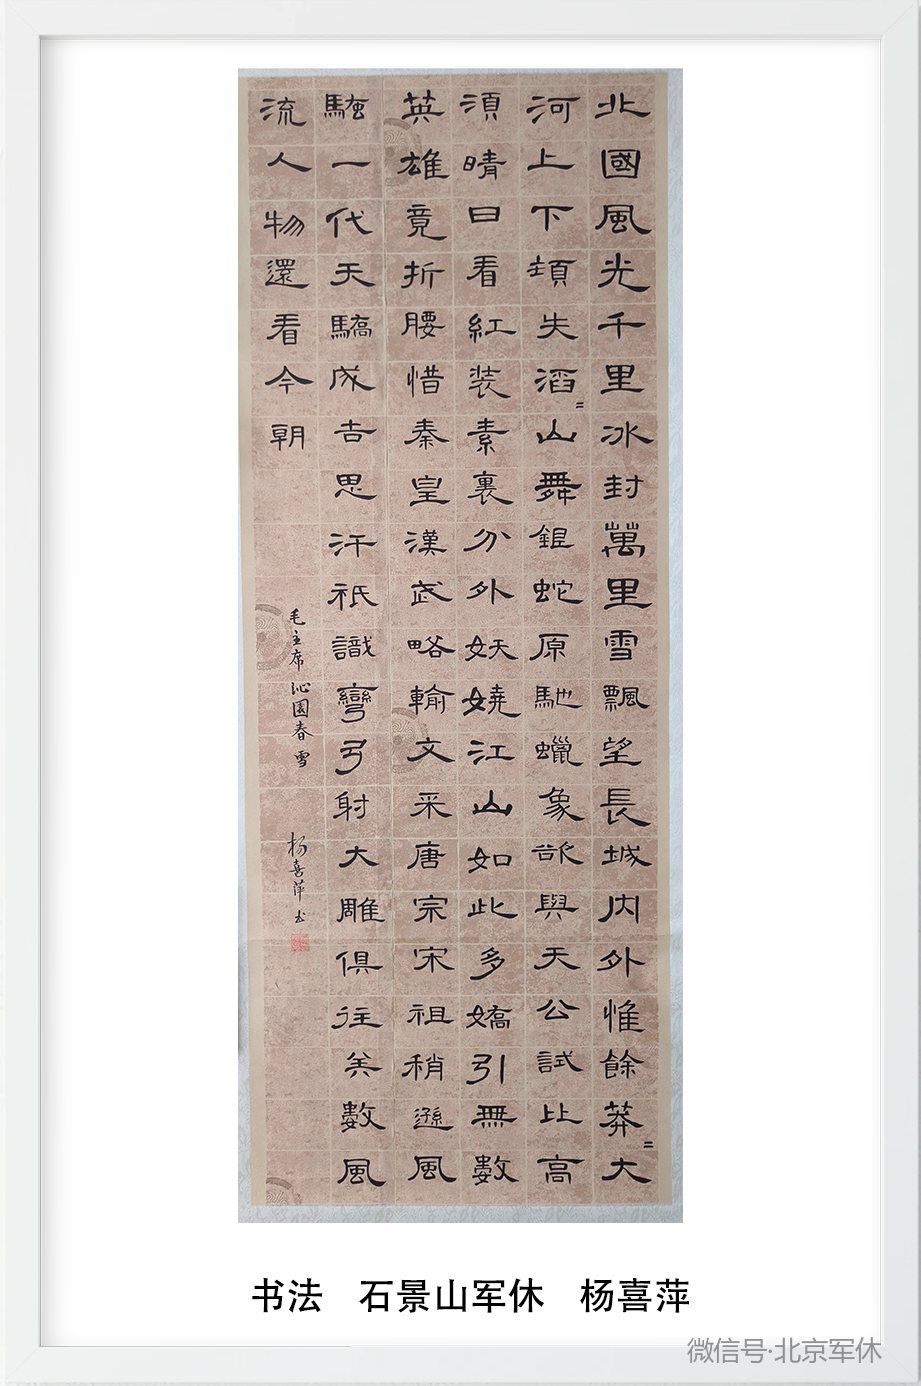 北國風光千里冰封萬里雪飄望長城内外惟餘莽〻大
河上下頓失滔〻山舞銀蛇原馳蠟象欲與天公試比高
須晴日看紅装素裹分外妖嬈江山如此多嬌引無數
英雄竟折腰惜秦皇漢武略輸文采唐宗宋祖稍遜風
騷一代天驕成吉思汗祇識彎弓射大雕俱往矣數風
流人物還看今朝
毛主席沁園春雪 杨喜萍书
书法 石景山军休 杨喜萍
微信号·北京军休